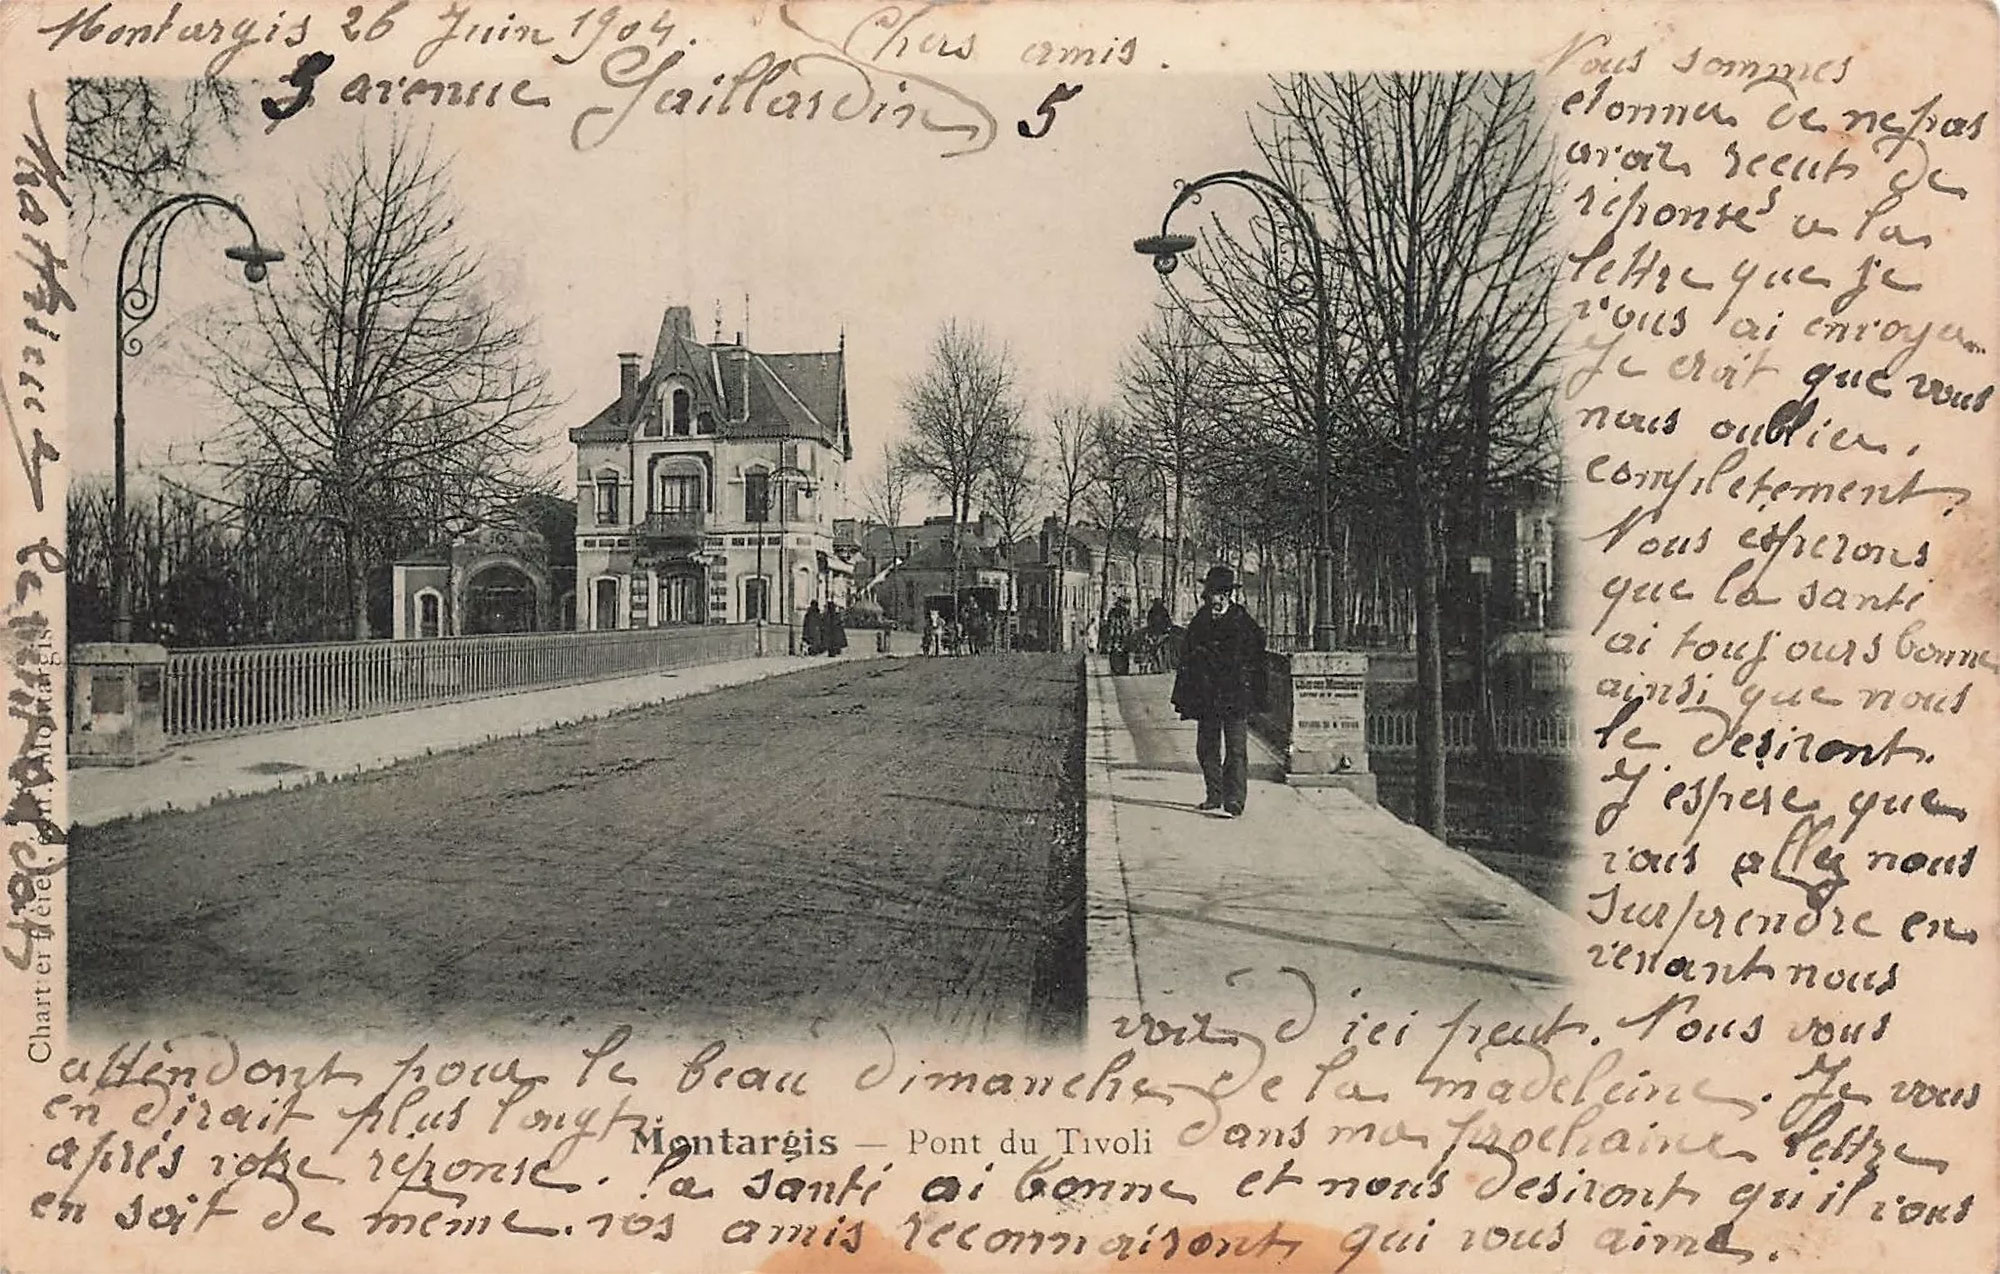 Montargis 26 Juin 1904. Chers amis.
5 avenue Gaillardin 5
Nous sommes
etonner de ne pas
avoir recut de
réponses a la
lettre que je
vous ai envoyer
Je croit que vous
nous oublier.
completement.
Nous esperons
que la santé
ai toujours bonne
ainsi que nous
le desiront.
J'espere que
vous aller nous
surprendre en
venant nous
voir d'ici peut. Nous vous
attendont pour le beau dimanche de la madeleine. Je vous
en dirait plus longt dans ma prochaine lettre
après votre réponse. la santé ai bonne et nous desiront qu'il vous
en soit de même. vos amis reconnaisront qui vous aime.
Matthieu
Charrier Frère, édit. Montargis
Montargis — Pont du Tivoli